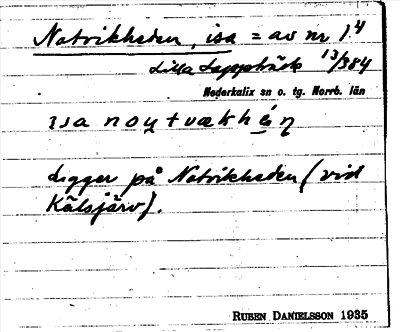 Notvikheden, isa = av nr 1⁴
Lilla Lappträsk 13/384
Nederkalix sn o. tg. Norrb. län
Ligger på Notvikheden (vid
Kälsjärv).
RUBEN DANIELSSON 1935